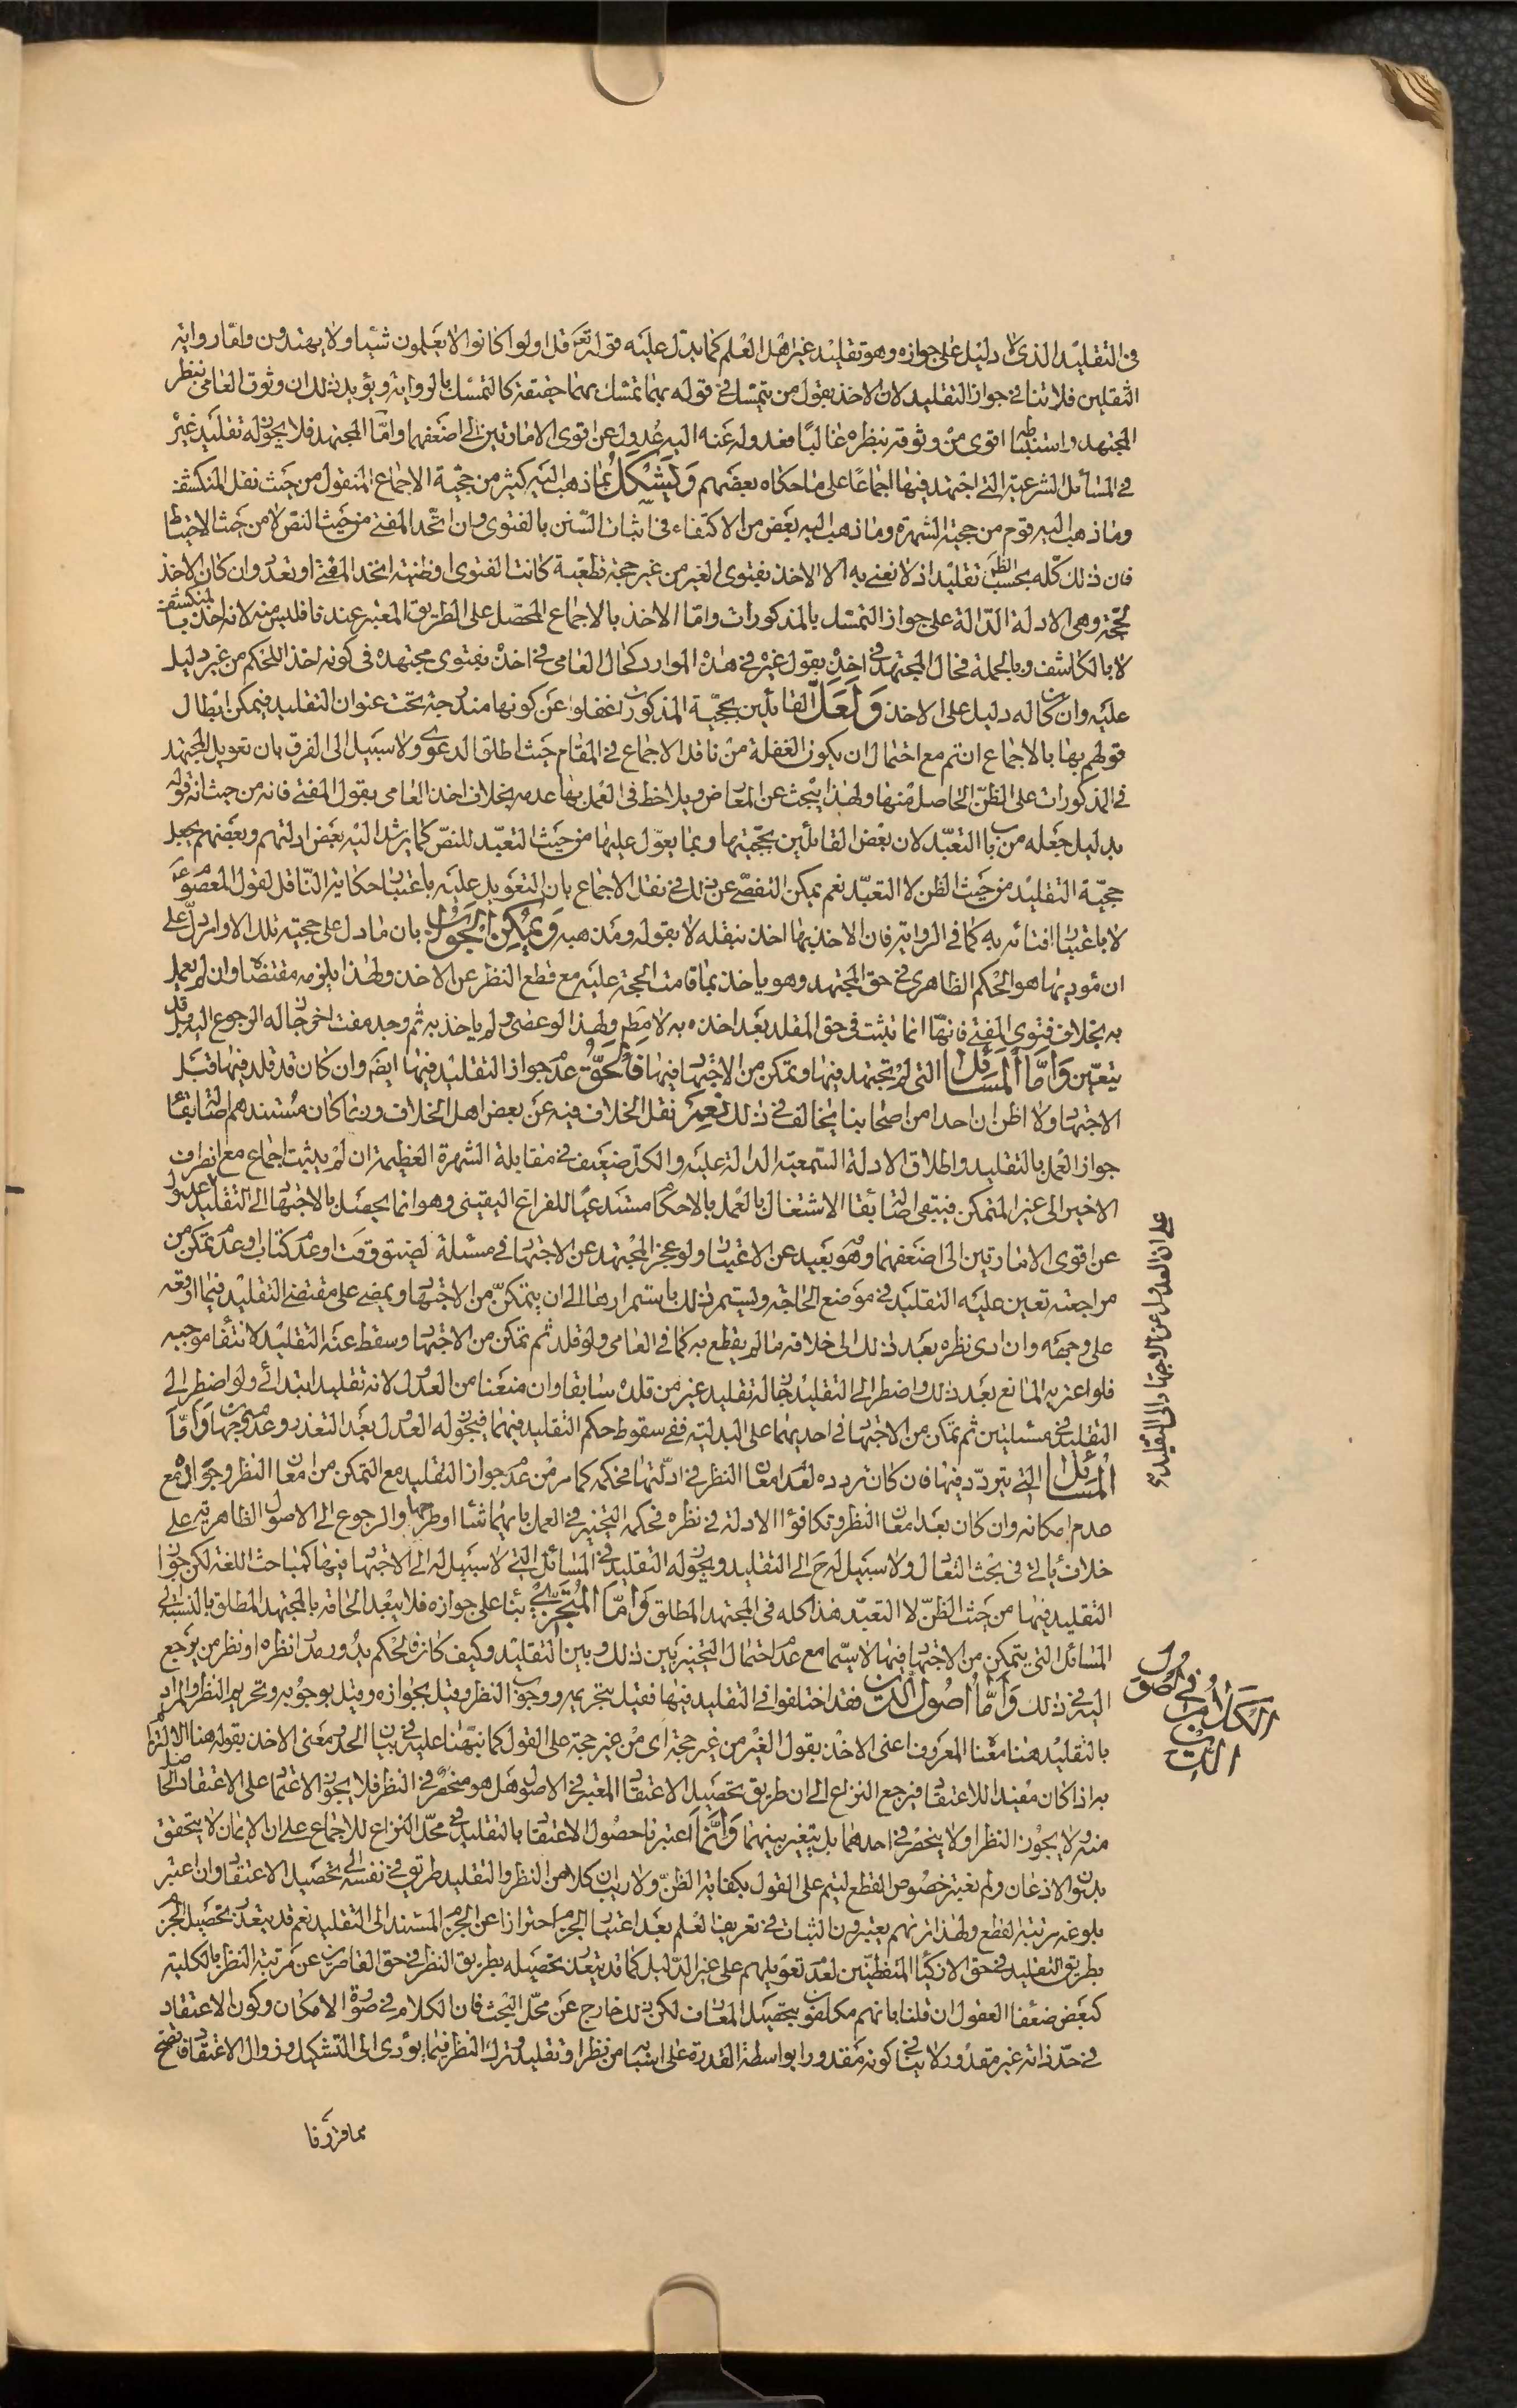 في التقليد الذى لا دليل على جوازه وهو تقليد غير اهل العلم كما يدل عليه قوله تعم قل اولو كانوا لا يعلمون شيئا ولا يهتدون واما رواية
الثقلين فلا تنافى جواز التقليد لان الاخذ بقول من يتمسك في قوله بهما تمسك بهما حقيقة كالتمسك بالرواية ويؤيد ذلك ان وثوق العامى بنظر
المجتهد واستنباطه اقوى من وثوقه بنظره غالبا فعدوله عنه اليه عدول عن اقوى الامارتين الى اضعفهما واما المجتهد فلا يجوز له تقليد غيره
في المسائل الشرعية التي اجتهد فيها اجماعا على ما حكاه بعضهم ويشكل بما ذهب اليه كثير من حجية الاجماع المنقول من حيث نقل المنكشف
وما ذهب اليه قوم من حجية الشهرة وما ذهب اليه بعض من الاكتفاء في اثبات السنن بالفتوى وان اتحد المفتى من حيث النص لا من حيث الاحتياط
فان ذلك كله بحسب الظ تقليد اذ لا نعنى به الا الاخذ بفتوى الغير من غير حجة قطعية كانت الفتوى او ظنية اتحد المفتى او تعدد وان كان الاخذ
لحجة وهى الادلة الدالة على جواز التمسك بالمذكورات واما الاخذ بالاجماع المحصل على الطريق المعتبر عندنا فليس منه لانه اخذ بالمنكشف
لا بالكاشف وبالجملة فحال المجتهد في اخذه بقول غيره في هذه الموارد كحال العامى في اخذه بفتوى مجتهده في كونه اخذا للحكم من غير دليل
عليه وان كان له دليل على الاخذ ولعل القائلين بحجية المذكورات غفلوا عن كونها مندرجة تحت عنوان التقليد فيمكن ابطال
قولهم بها بالاجماع ان تم مع احتمال ان يكون الغفلة من ناقل الاجماع في المقام حيث اطلق الدعوى ولا سبيل الى الفرق بان تعويل المجتهد
في المذكورات على الظن الحاصل منها ولهذا يبحث عن المعارض ويلاحظ في العمل بها عدمه بخلاف اخذ العامى بقول المفتى فانه من حيث انه قوله
بدليل جعله من باب التعبد لان بعض القائلين بحجيتها ربما يعول عليها من حيث التعبد للنص كما يرشد اليه بعض ادلتهم وبعضهم يجعل
حجية التقليد من حيث الظن لا التعبد نعم يمكن التفصى عن ذلك في نقل الاجماع بان التعويل عليه باعتبار حكاية الناقل لقول المعصوم ع
لا باعتبار افتائه به كما في الرواية فان الاخذ بها اخذ بنقله لا بقوله ومذهبه ويمكن الجواب بان ما دل على حجية تلك الامارات دل على
ان مؤديها هو الحكم الظاهرى في حق المجتهد وهو ياخذ بما قامت الحجة عليه مع قطع النظر عن الاخذ ولهذا يلزمه مقتضاها وان لم يعمل
به بخلاف فتوى المفتى فانها انما تثبت في حق المقلد بعد اخذه به لا مطم ولهذا لو عصى ولم ياخذ به ثم وجد مفت اخر جاز له الرجوع اليه وقد
يتعين واما المسائل التي لم يجتهد فيها وتمكن من الاجتهاد فيها فالحق عدم جواز التقليد فيها ايضم وان كان قد قلد فيها قبل
الاجتهاد ولا اظن ان احدا من اصحابنا يخالف في ذلك نعم نقل الخلاف فيه عن بعض اهل الخلاف وربما كان مستندهم اصالة بقاء
جواز العمل بالتقليد واطلاق الادلة السمعية الدالة عليه والكل ضعيف في مقابلة الشهرة العظيمة ان لم يثبت اجماع مع انصراف
الاخير الى غير المتمكن فيبقى اصالة بقاء الاشتغال بالعمل بالاحكام مستدعيا للفراغ اليقينى وهو انما يحصل بالاجتهاد الى التقليد عدول
عن اقوى الامارتين الى اضعفهما وهو بعيد عن الاعتبار ولو عجز المجتهد عن الاجتهاد في مسئلة لضيق وقت او عدم كتاب او عدم تمكن من
مراجعته تعين عليه التقليد في موضع الحاجة ويستمر ذلك باستمرارها الى ان يتمكن من الاجتهاد ويمضى على مقتضى التقليد فيما اوقعه
على وجهه وان ادى نظره بعد ذلك الى خلافه ما لم يقطع به كما في العامى ولو قلد ثم تمكن من الاجتهاد سقط عنه التقليد لانتفاء موجبه
فلو اعتريه المانع بعد ذلك واضطر الى التقليد جاز له تقليد غير من قلده سابقا وان منعنا من العدول لانه تقليد ابتدائى ولو اضطر الى
التقليد في مسئلتين ثم تمكن من الاجتهاد في احديهما على البدلية ففى سقوط حكم التقليد فيهما فيجوز له العدول بعد التعذر وعدمه وجهان واما
المسائل التي يتردد فيها فان كان تردده لعدم امعان النظر في ادلتها فحكمه كما مر من عدم جواز التقليد مع التمكن من امعان النظر وجوازه مع
عدم امكانه وان كان بعد امعان النظر وتكافؤ الادلة في نظره فحكمه التخيير في العمل بايهما شاء او طرحهما والرجوع الى الاصول الظاهرية على
خلاف ياتى في بحث التعادل ولا سبيل له ح الى التقليد ويجوز له التقليد في المسائل التي لا سبيل له الى الاجتهاد فيها كمباحث اللغة لكن جواز
التقليد فيها من حيث الظن لا التعبد هذا كله في المجتهد المطلق واما المتجزى بناء على جوازه فلا يبعد الحاقه بالمجتهد المطلق بالنسبة الى
المسائل التي يتمكن من الاجتهاد فيها لا سيما مع عدم احتمال التخيير بين ذلك وبين التقليد وكيف كان فالحكم يدور مدار نظره او نظر من يرجع
اليه في ذلك واما اصول الدين فقد اختلفوا في التقليد فيها فقيل بتحريمه ووجوب النظر وقيل بجوازه وقيل بوجوبه وتحريم النظر والمراد
بالتقليد هنا معناه المعروف اعنى الاخذ بقول الغير من غير حجة اى من غير حجة على القول كما نبهنا عليه في بيان الحد ومعنى الاخذ بقوله هنا الالتزام
به اذا كان مفيدا للاعتقاد فيرجع النزاع الى ان طريق تحصيل الاعتقاد المعتبر في الاصول هل هو منحصر في النظر فلا يجوز الاعتماد على الاعتقاد الحاصل
منه ولا يجوز النظر او لا ينحصر في احدهما بل يتخير بينهما وانما اعتبرنا حصول الاعتقاد بالتقليد في محل النزاع للاجماع على ان الايمان لا يتحقق
بدون الاذعان ولم نعتبر خصوص القطع ليتم على القول بكفاية الظن ولا ريب ان كلا من النظر والتقليد طريق في نفسه الى تحصيل الاعتقاد وان اعتبر
بلوغه مرتبة القطع ولهذا تريهم يعتبرون الثبات في تعريف العلم بعد اعتبار الجزم احترازا عن الجزم المستند الى التقليد نعم قد يتعذر تحصيل الجزم
بطريق التقليد في حق الاذكياء المتفطنين لعدم تعويلهم على غير الدليل كما قد يتعذر تحصيله بطريق النظر في حق القاصرين عن مرتبة النظر بالكلية
كبعض ضعفاء العقول ان قلنا بانهم مكلفون بتحصيل المعارف لكن ذلك خارج عن محل البحث فان الكلام في صورة الامكان وكون الاعتقاد
في حد ذاته غير مقدور لا ينافى كونه مقدورا بواسطة القدرة على اسبابه من نظر او تقليد وترك النظر فيما يؤدى الى التشكيك وزوال الاعتقاد فاتضح
مما قررنا
على ان العدول عن الاجتهاد الى التقليد
الكلام في اصول الدين